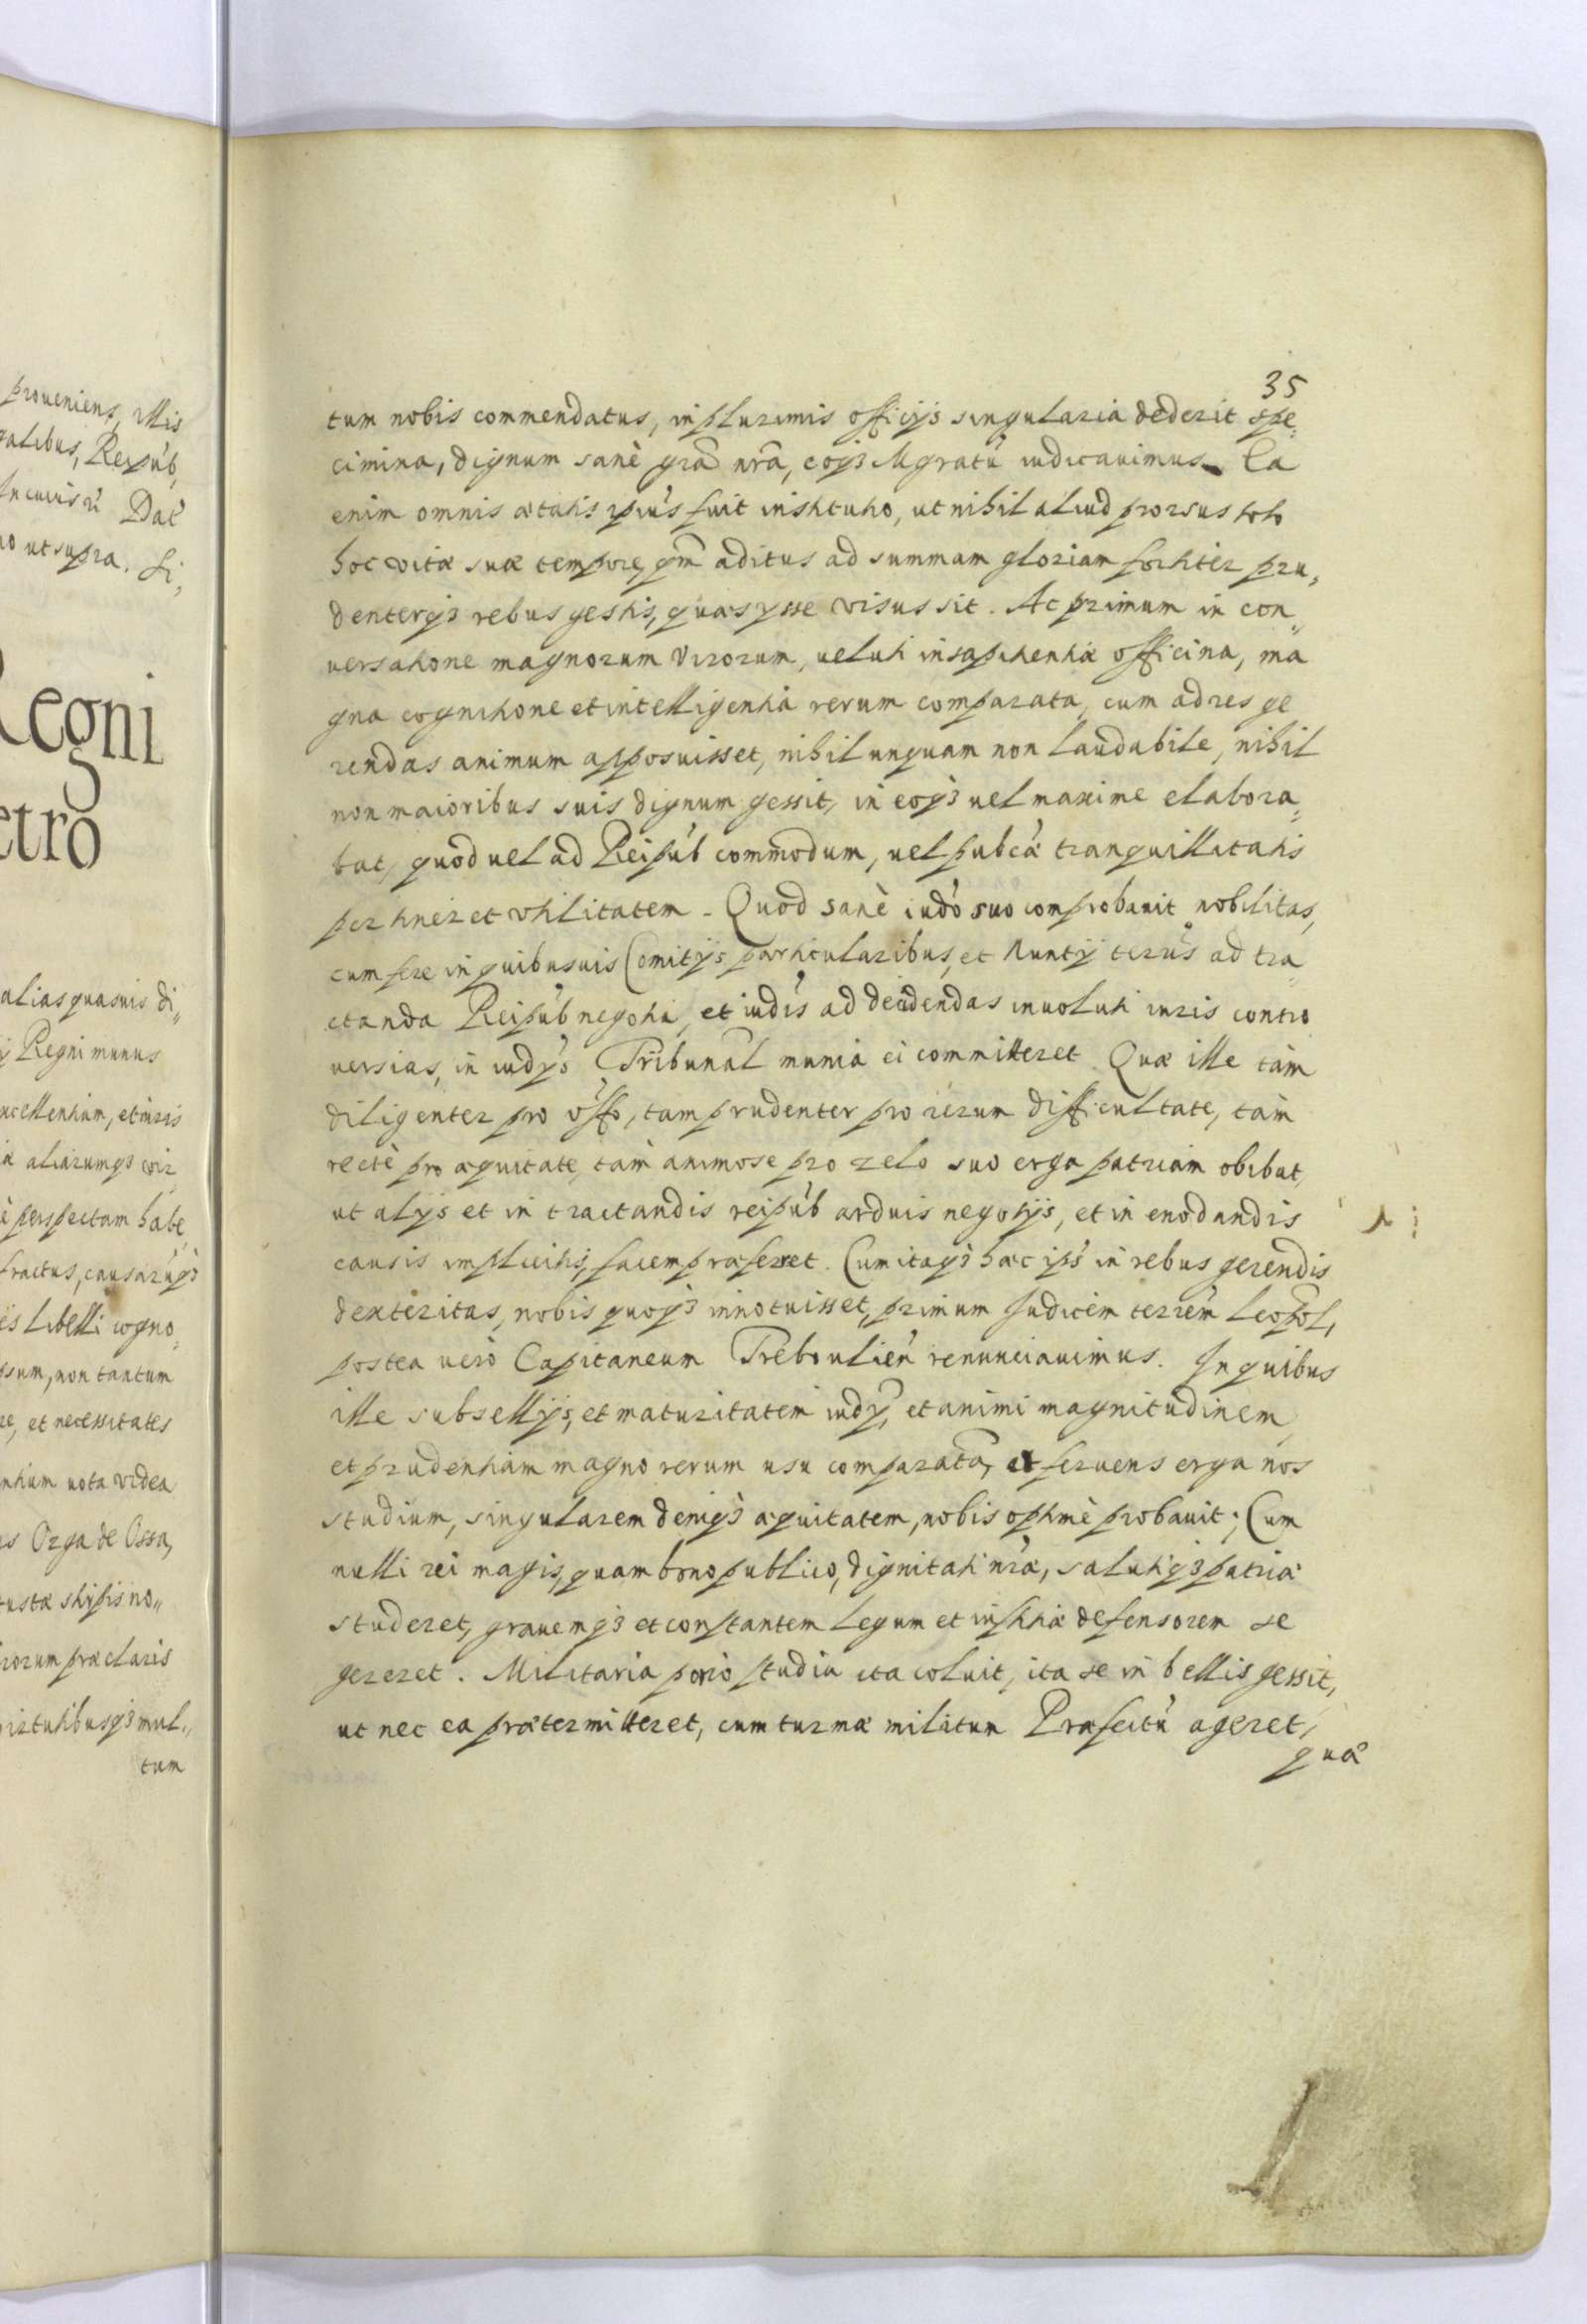 proueniens, illis
galibus, Reipub,
In cuius rei Dat
no ut supra. Si,
Regni
etro
alias quasuis di„
Regni munus
excellentiam, et iuris
aliarumq3 vir
perspectam habe
fractus, causarūq3
libelli cogno„
psum, non tantum
re, et necessitates
uota videa
Orga de Ossa,
tustæ stirpis no„
rorum præclaris
virtutibusq3 mul„
tum
35
tum nobis commendatus, in plurimis officijs singularia dederit spe„
cimina, dignum sanè gra nra, eoq3 Mgratu iudicauimus. Ea
enim omnis ætatis ipius fuit institutio, ut nihil aliud prorsus toto
hoc vitæ suæ tempore, qm aditus ad summam gloriam fortiter pru„
denterq3 rebus gestis, quæsysse visus sit. Ac primum in con„
uersatione magnorum Virorum, ueluti in sapientiæ officina, ma
gna cognitione et intelligentia rerum comparata, cum ad res ge
rendas animum apposuisset, nihil unquam non laudabile, nihil
non maioribus suis dignum gessit, in eoq3 uel maxime elabora„
bat, quod uel ad Reipub commodum, uel pubcæ tranquillitatis
pertineret vtilitatem. Quod sanè iudo suo comprobauit nobilitas,
cum fere in quibusuis Comitijs particularibus, et Nuntij terrus ad tra„
ctanda Reipub negotia, et iudis ad decidendas inuoluti iuris contro
uersias, in iudys Tribunal munia ei committeret. Quæ ille tàm
diligenter pro offo, tam prudenter pro rerum difficultate, tàm
rectè pro æquitate, tàm animose pro zelo suo erga patriam obibat,
ut alijs et in tractandis reipub arduis negotijs, et in enodandis
causis implicitis, facem præferret. Cum itaq3 hæc ips in rebus gerendis
dexteritas, nobis quoq3 innotuisset, primum Judicem terrem Leopol,
postea uero Capitaneum Treboulien renunciauimus. In quibus
ille subsellijs, et maturitatem iudy, et animi magnitudinem,
et prudentiam magno rerum usu comparatã, et feruens erga nos
studium, singularem deniq3 æquitatem, nobis optimè probauit; Cum
nulli rei magis, quam bono publico, dignitati nræ, salutiq3 patriæ
studeret, grauemq3 et constantem legum et iustitiæ defensorem se
gereret. Militaria porrò studia ita coluit, ita se in bellis gessit,
ut nec ea prætermitteret, cum turmæ militum Præfectū ageret,
quæ